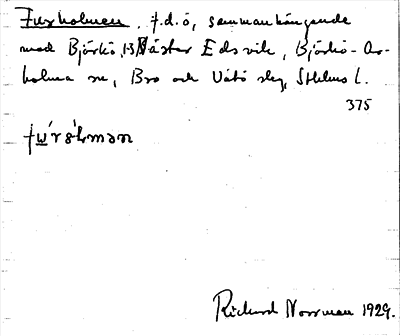 Furholmen, f.d. ö, sammanhängande
med Björkö, Väster Edsvik, Björkö-Ar-
holma sn, Bro och Vätö skg, Sthlms l.
375
Richard Norrman 1929.